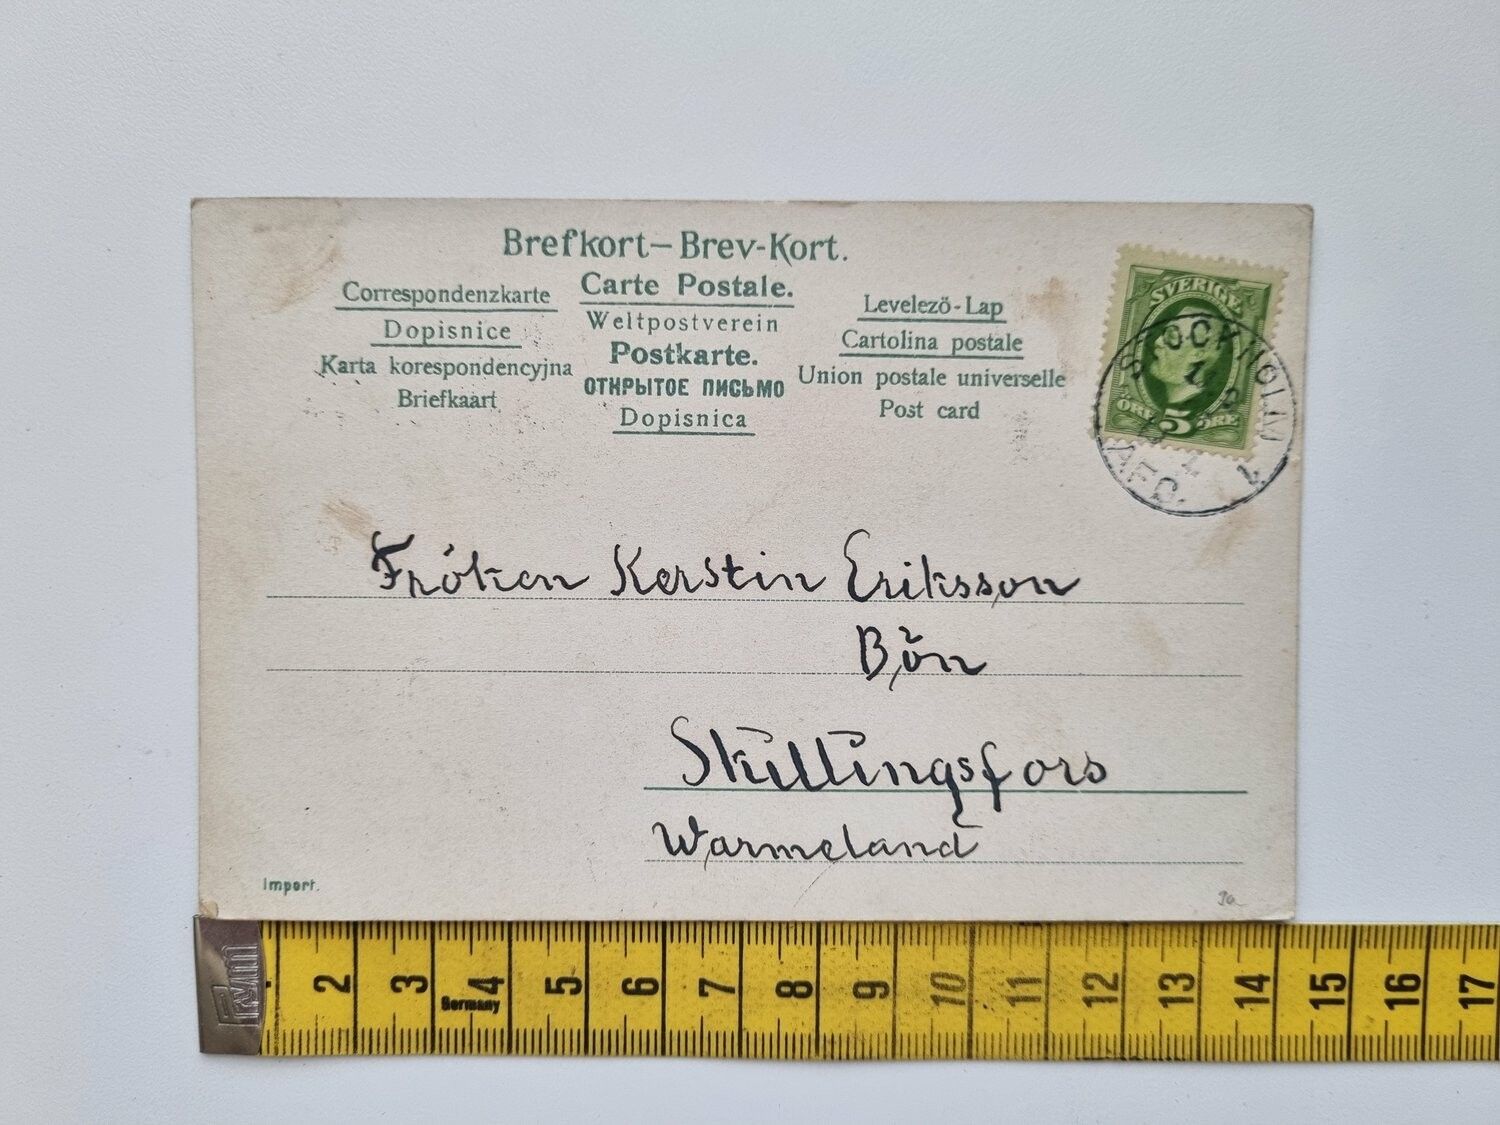 Brefkort – Brev-Kort.
Correspondenzkarte
Dopisnice
Karta korespondencyjna
Briefkaart
Carte Postale.
Weltpostverein
Postkarte.
ОТКРЫТОЕ ПИСЬМО
Dopisnica
Levelező-Lap
Cartolina postale
Union postale universelle
Post card
SVERIGE
ÖRE 5 ÖRE
STOCKHOLM
AFG. 4
Fröken Kerstin Eriksson
Bön
Skillingsfors
Warmeland
Import.
Prym
Germany
2 3 4 5 6 7 8 9 10 11 12 13 14 15 16 17